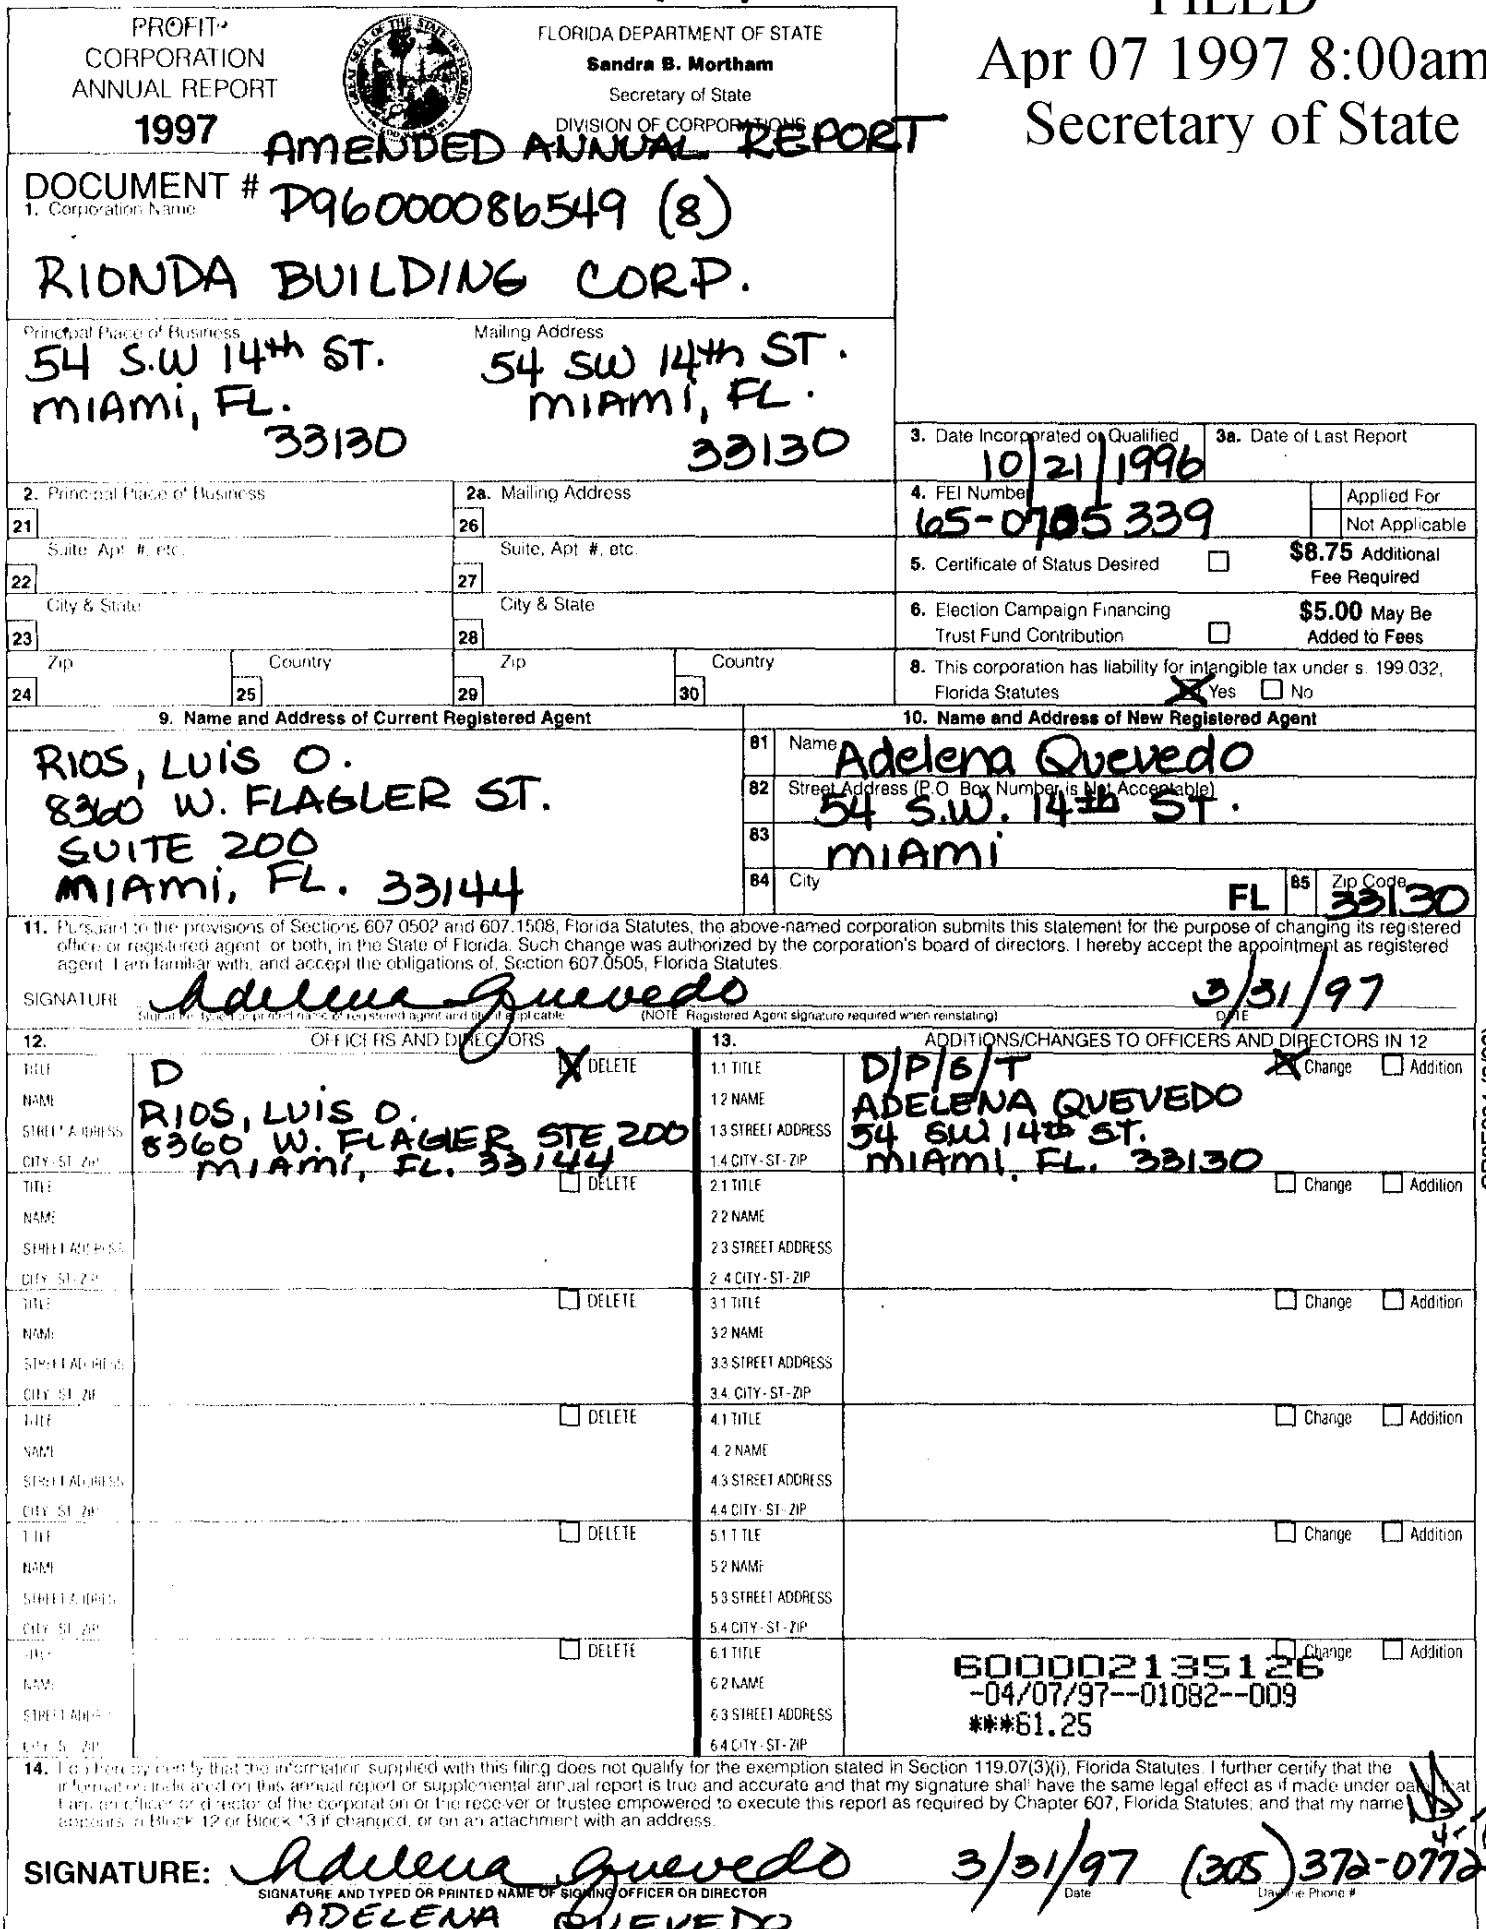 PROFIT
CORPORATION
ANNUAL REPORT
1997
FLORIDA DEPARTMENT OF STATE
Sandra B. Mortham
Secretary of State
DIVISION OF CORPORATIONS
FILED
Apr 07 1997 8:00am
Secretary of State
AMENDED ANNUAL REPORT
DOCUMENT # P96000086549 (8)
1. Corporation Name
RIONDA BUILDING CORP.
Principal Place of Business
54 S.W 14th ST.
MIAMI, FL.
33130
Mailing Address
54 SW 14th ST.
MIAMI, FL.
33130
3. Date Incorporated or Qualified
10/21/1996
3a. Date of Last Report
2. Principal Place of Business
2a. Mailing Address
4. FEI Number
65-0705339
Applied For
Not Applicable
21
26
Suite, Apt. #, etc.
Suite, Apt. #, etc.
22
27
5. Certificate of Status Desired
$8.75 Additional
Fee Required
City & State
City & State
23
28
6. Election Campaign Financing
Trust Fund Contribution
$5.00 May Be
Added to Fees
Zip
Country
Zip
Country
24
25
29
30
8. This corporation has liability for intangible tax under s. 199.032,
Florida Statutes Yes No
9. Name and Address of Current Registered Agent
RIOS, LUIS O.
8360 W. FLAGLER ST.
SUITE 200
MIAMI, FL. 33144
10. Name and Address of New Registered Agent
81 Name Adelena Quevedo
82 Street Address (P.O. Box Number is Not Acceptable)
54 S.W. 14th ST.
83
MIAMI
84 City FL 85 Zip Code
33130
11. Pursuant to the provisions of Sections 607.0502 and 607.1508, Florida Statutes, the above-named corporation submits this statement for the purpose of changing its registered
office or registered agent, or both, in the State of Florida. Such change was authorized by the corporation's board of directors. I hereby accept the appointment as registered
agent. I am familiar with, and accept the obligations of, Section 607.0505, Florida Statutes.
SIGNATURE Adelena Quevedo 3/31/97
Signature, typed or printed name of registered agent and title if applicable (NOTE: Registered Agent signature required when reinstating) DATE
12. OFFICERS AND DIRECTORS
13. ADDITIONS/CHANGES TO OFFICERS AND DIRECTORS IN 12
TITLE D DELETE
NAME RIOS, LUIS O.
STREET ADDRESS 8360 W. FLAGLER STE 200
CITY-ST-ZIP MIAMI, FL. 33144
1.1 TITLE D/P/S/T Change Addition
1.2 NAME ADELENA QUEVEDO
1.3 STREET ADDRESS 54 SW 14th ST.
1.4 CITY-ST-ZIP MIAMI, FL. 33130
TITLE DELETE
NAME
STREET ADDRESS
CITY-ST-ZIP
2.1 TITLE Change Addition
2.2 NAME
2.3 STREET ADDRESS
2.4 CITY-ST-ZIP
TITLE DELETE
NAME
STREET ADDRESS
CITY-ST-ZIP
3.1 TITLE Change Addition
3.2 NAME
3.3 STREET ADDRESS
3.4 CITY-ST-ZIP
TITLE DELETE
NAME
STREET ADDRESS
CITY-ST-ZIP
4.1 TITLE Change Addition
4.2 NAME
4.3 STREET ADDRESS
4.4 CITY-ST-ZIP
TITLE DELETE
NAME
STREET ADDRESS
CITY-ST-ZIP
5.1 TITLE Change Addition
5.2 NAME
5.3 STREET ADDRESS
5.4 CITY-ST-ZIP
TITLE DELETE
NAME
STREET ADDRESS
CITY-ST-ZIP
6.1 TITLE Change Addition
6.2 NAME
6.3 STREET ADDRESS
6.4 CITY-ST-ZIP
600002135126
-04/07/97--01082--009
***61.25
14. I do hereby certify that the information supplied with this filing does not qualify for the exemption stated in Section 119.07(3)(i), Florida Statutes. I further certify that the
information indicated on this annual report or supplemental annual report is true and accurate and that my signature shall have the same legal effect as if made under oath; that
I am an officer or director of the corporation or the receiver or trustee empowered to execute this report as required by Chapter 607, Florida Statutes; and that my name
appears in Block 12 or Block 13 if changed, or on an attachment with an address.
SIGNATURE: Adelena Quevedo 3/31/97 (305) 372-0772
SIGNATURE AND TYPED OR PRINTED NAME OF SIGNING OFFICER OR DIRECTOR Date Daytime Phone #
ADELENA QUEVEDO